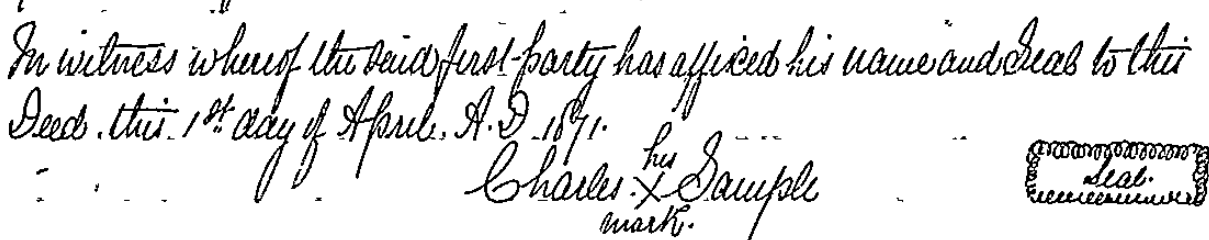 In witness whereof the said first party has affixed his name and Seal to this
Deed, this 1st day of April, A.D. 1871.
his
Charles X Sample Seal.
mark.